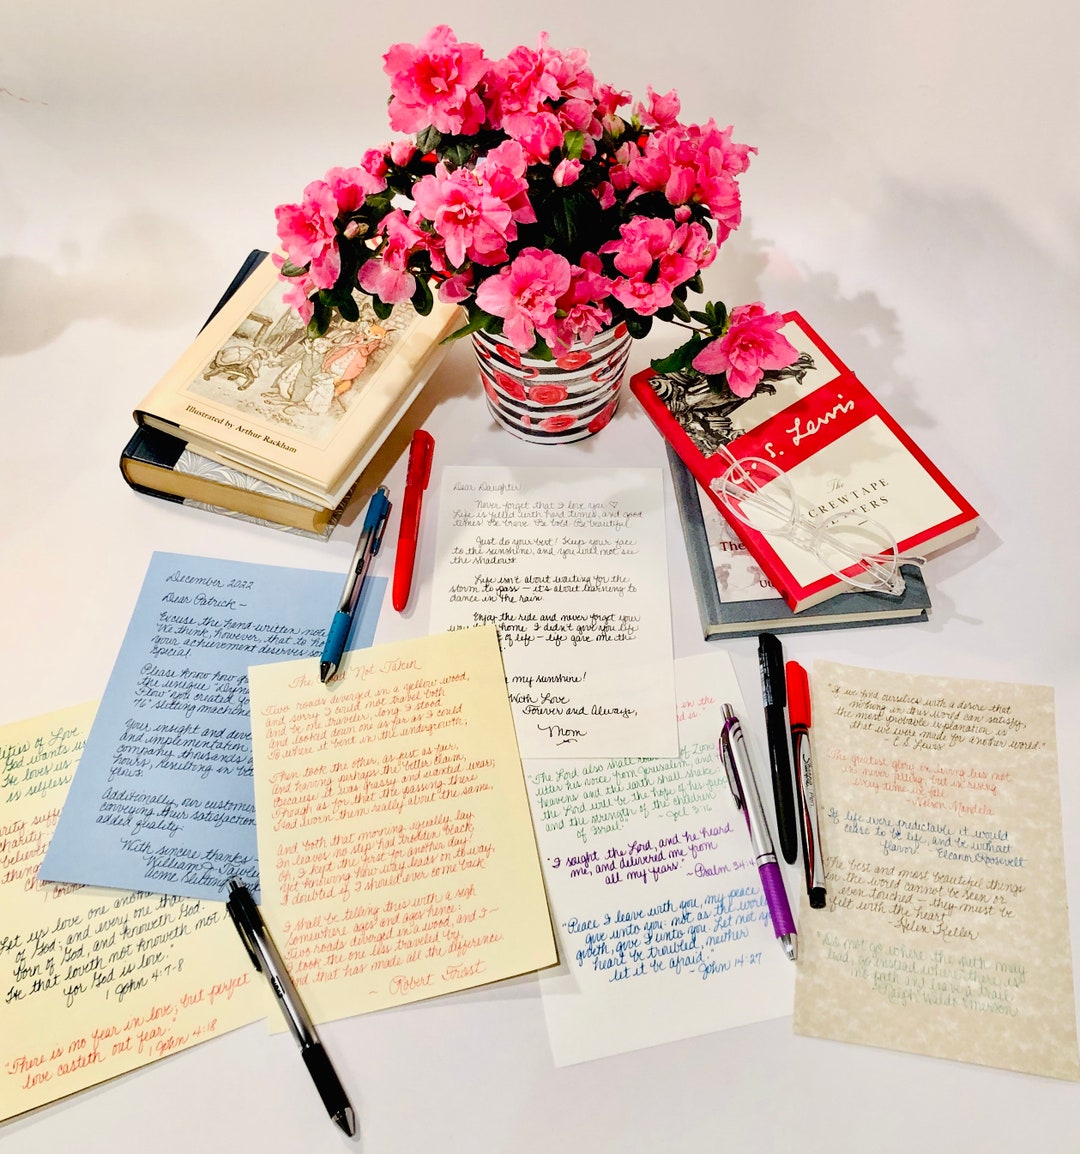 Illustrated by Arthur Rackham
C. S. Lewis
The
SCREWTAPE
LETTERS
The
Dear Daughter,
Never forget that I love you ♡
Life is filled with hard times, and good
times. Be brave. Be bold. Be beautiful.
Just do your best! Keep your face
to the sunshine, and you will not see
the shadows.
Life isn't about waiting for the
storm to pass – it's about learning to
dance in the rain.
Enjoy the ride and never forget your
way home. I didn't give you life
of life – life gave me the
my sunshine!
With Love
Forever and Always,
Mom
December 2022
Dear Patrick –
Excuse the hand-written note
We think, however, that to ho
your achievement deserves so
special.
Please know how g
the unique "Dyn
Flow" you created fo
76" slitting machine
Your insight and dev
and implementation
company thousands o
hours, resulting in
Additionally, our customer
conveying their satisfaction
added quality.
With sincere thanks –
William J.
Acme Slitting
The Road Not Taken
Two roads diverged in a yellow wood,
and sorry I could not travel both
and be one traveler, long I stood
and looked down one as far as I could
To where it bent in the undergrowth;
Then took the other, as just as fair,
and having perhaps the better claim,
Because it was grassy and wanted wear;
Though as for that the passing there
Had worn them really about the same,
And both that morning equally lay
In leaves no step had trodden black.
Oh, I kept the first for another day!
Yet knowing how way leads on to way,
I doubted if I should ever come back.
I shall be telling this with a sigh
Somewhere ages and ages hence:
Two roads diverged in a wood, and I –
I took the one less traveled by,
and that has made all the difference.
~ Robert Frost
of Love
God wants us
He loves us –
is selfless
charity
Let us love one anoth
of God; and every one that
born of God, and knoweth God.
He that loveth not knoweth not
for God is love."
1 John 4:7-8
"There is no fear in love; but perfect
love casteth out fear."
1 John 4:18
in the
is
"The Lord also shall roar out of Zion,
utter his voice from Jerusalem, and
heavens and the earth shall shake
the Lord will be the hope of his people
and the strength of the children
of Israel." ~ Joel 3:
"I sought the Lord, and he heard
me, and delivered me from
all my fears." ~ Psalm 34:4
"Peace I leave with you, my peace I
give unto you: not as the world
giveth, give I unto you. Let not yo
heart be troubled, neither
let it be afraid." ~ John 14:27
"If we find ourselves with a desire that
nothing in this world can satisfy,
the most probable explanation is
that we were made for another world."
C.S. Lewis
The greatest glory in living lies not
in never falling, but in rising
every time we fall.
~ Nelson Mandela
If life were predictable it would
cease to be life, and be without
flavor. ~ Eleanor Roosevelt
"The best and most beautiful things
in the world cannot be seen or
even touched – they must be
felt with the heart."
~ Helen Keller
"Do not go where the path may
lead, go instead where there is
no path and leave a trail."
~ Ralph Waldo Emerson